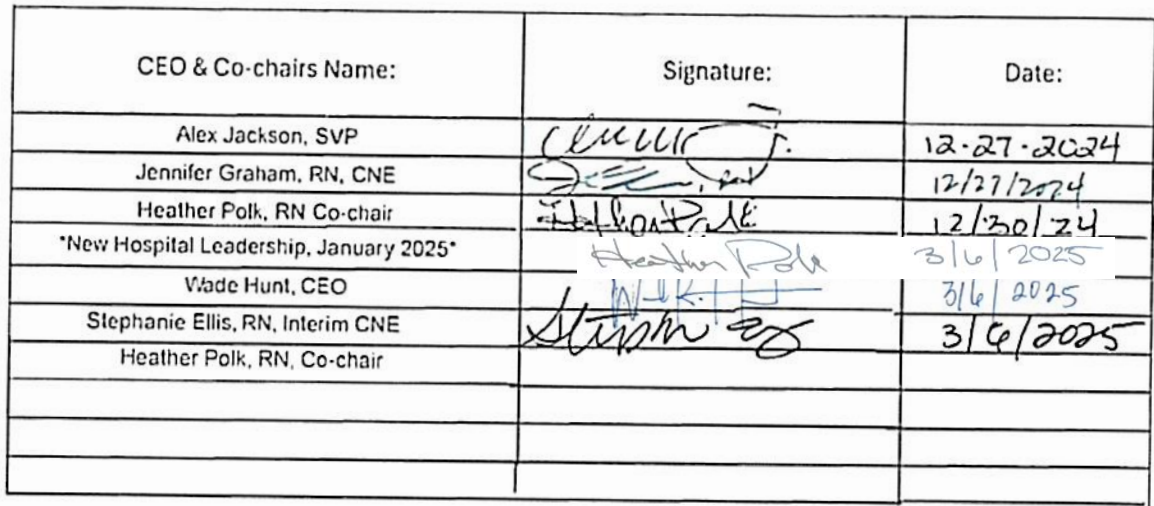 CEO & Co-chairs Name: Signature: Date:
Alex Jackson, SVP 12-27-2024
Jennifer Graham, RN, CNE 12/27/2024
Heather Polk, RN Co-chair Heather Polk 12/30/24
*New Hospital Leadership, January 2025* Heather Polk 3/6/2025
Wade Hunt, CEO 3/6/2025
Stephanie Ellis, RN, Interim CNE 3/6/2025
Heather Polk, RN, Co-chair